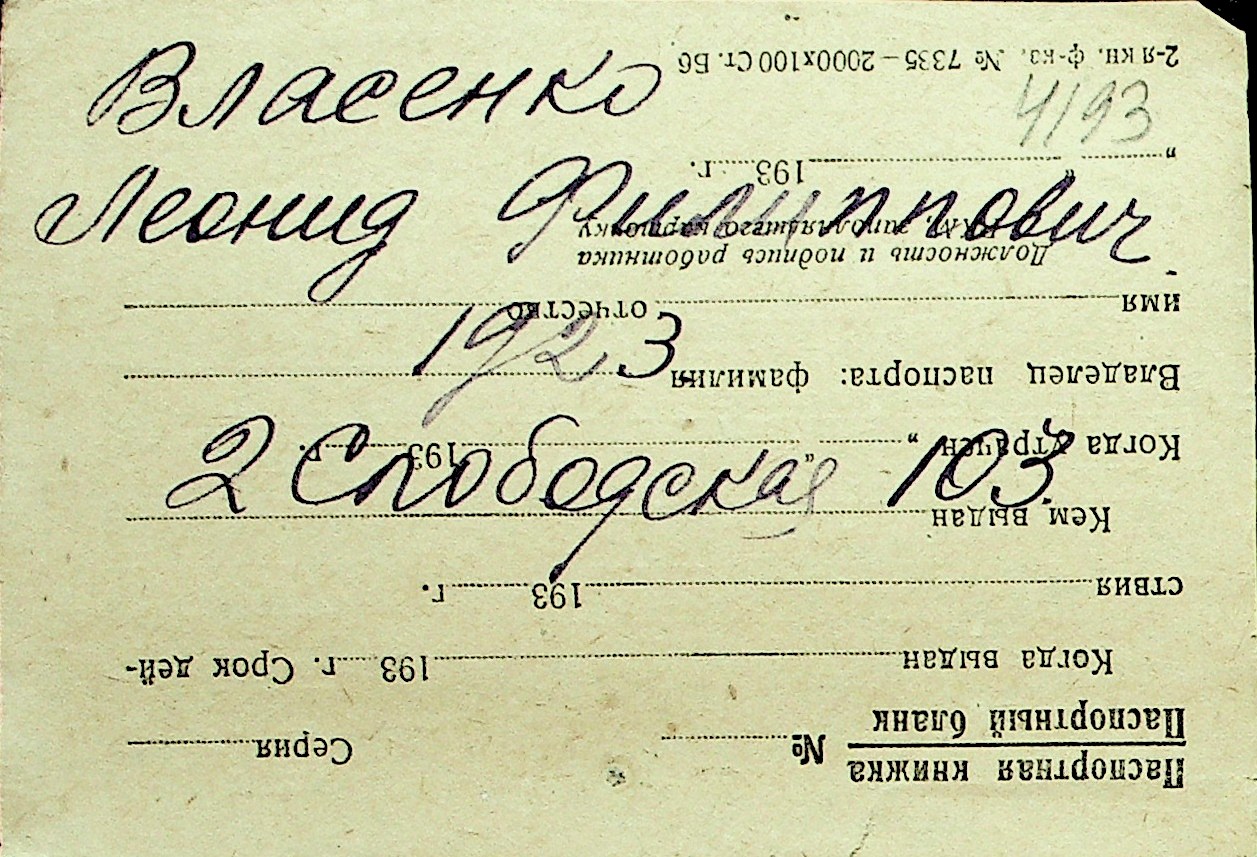 Власенко
Леонид Филиппович
1923
2 Слободская 103
4193
Паспортная книжка
Паспортный бланк
№ Серия
Когда выдан 193 г. Срок дей-
ствия 193 г.
Кем выдан
Когда утрачен „ “ 193 г.
Владелец паспорта: фамилия
имя отчество
Должность и подпись работника
РКМ, заполнявшего карточку
„ “ 193 г.
2-я кн. ф-ка. № 7335—2000х100 Ст. Б6